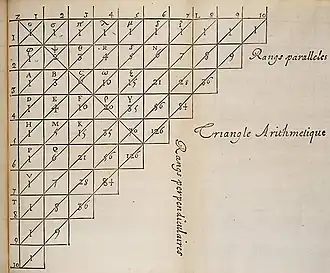 Z 1 2 3 4 5 6 7 L 8 9 10
G σ π λ μ δ ζ
1 1 1 1 1 1 1 1 1 1 1
φ ψ θ R S N
2 1 2 3 4 5 6 7 8 9
A B C ω ξ
3 1 3 6 10 15 21 28 36
D E F ρ Y
4 1 4 10 20 35 56 84
H M K
5 1 5 15 35 70 126
P Q
6 1 6 21 56 126
V
7 1 7 28 84
8 1 8 36
9 1 9
10 1
Rangs paralleles
Triangle Arithmetique
Rangs perpendiculaires